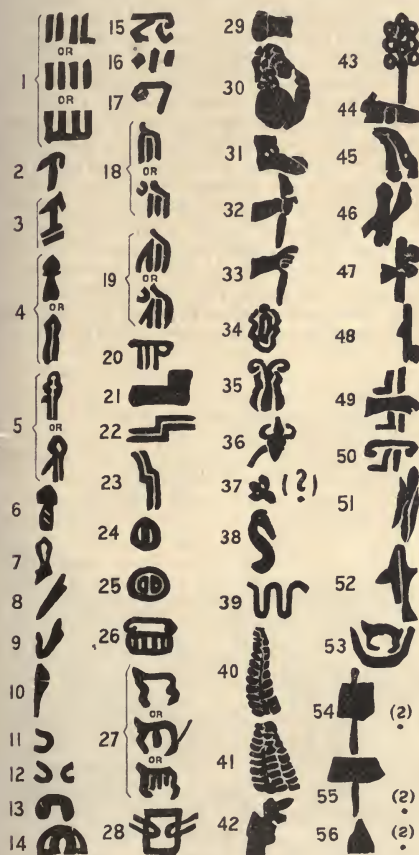 1
OR
OR
2
3
4
OR
5
OR
6
7
8
9
10
11
12
13
14
15
16
17
18
OR
19
OR
20
21
22
23
24
25
26
27
OR
OR
28
29
30
31
32
33
34
35
36
37 (?)
38
39
40
41
42
43
44
45
46
47
48
49
50
51
52
53
54 (?)
55 (?)
56 (?)